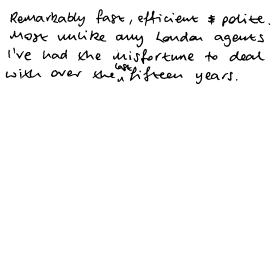 Remarkably fast, efficient & polite.
Most unlike any London agents
I've had the misfortune to deal
with over the last fifteen years.